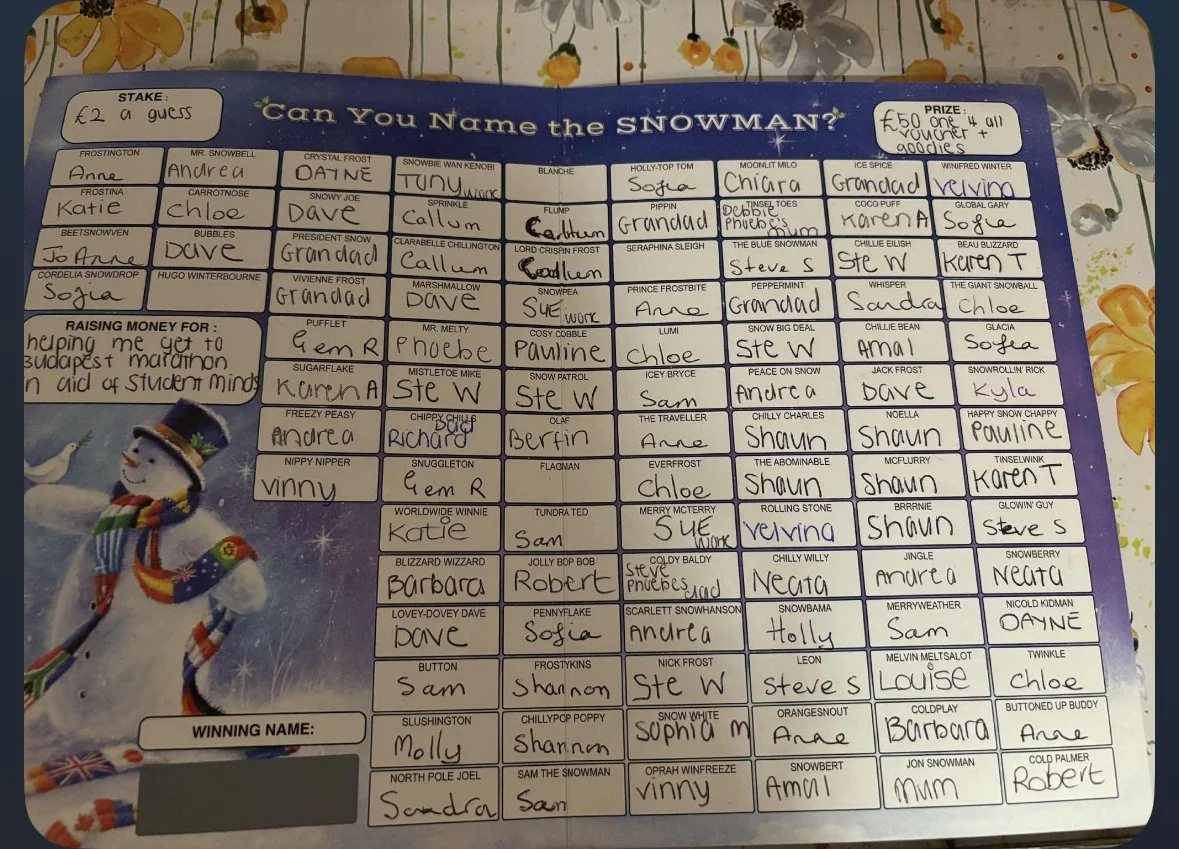 STAKE:
£2 a guess
Can You Name the SNOWMAN?
PRIZE:
£50 one 4 all
voucher +
goodies
FROSTINGTON
Anne
MR. SNOWBELL
Andrea
CRYSTAL FROST
DAYNE
SNOWBIE WAN KENOBI
TONY work
BLANCHE
HOLLY-TOP TOM
Sofia
MOONLIT MILO
Chiara
ICE SPICE
Grandad
WINIFRED WINTER
Velvina
FROSTINA
Katie
CARROTNOSE
Chloe
SNOWY JOE
Dave
SPRINKLE
Callum
FLUMP
Callum
PIPPIN
Grandad
TINSEL TOES
Debbie
Phoebe's
mum
COCO PUFF
Karen A
GLOBAL GARY
Sofia
BEETSNOWVEN
Jo Anne
BUBBLES
Dave
PRESIDENT SNOW
Grandad
CLARABELLE CHILLINGTON
Callum
LORD CRISPIN FROST
Callum
SERAPHINA SLEIGH
THE BLUE SNOWMAN
Steve S
CHILLIE EILISH
Ste W
BEAU BLIZZARD
Karen T
CORDELIA SNOWDROP
Sofia
HUGO WINTERBOURNE
VIVIENNE FROST
Grandad
MARSHMALLOW
Dave
SNOWPEA
SUE work
PRINCE FROSTBITE
Anne
PEPPERMINT
Grandad
WHISPER
Sandra
THE GIANT SNOWBALL
Chloe
RAISING MONEY FOR :
helping me get to
Budapest marathon
in aid of Student Minds
PUFFLET
Gem R
MR. MELTY
Phoebe
COSY COBBLE
Pauline
LUMI
Chloe
SNOW BIG DEAL
Ste W
CHILLIE BEAN
Amal
GLACIA
Sofia
SUGARFLAKE
Karen A
MISTLETOE MIKE
Ste W
SNOW PATROL
Ste W
ICEY BRYCE
Sam
PEACE ON SNOW
Andrea
JACK FROST
Dave
SNOWROLLIN' RICK
Kyla
FREEZY PEASY
Andrea
CHIPPY CHILLS
Dad
Richard
OLAF
Berfin
THE TRAVELLER
Anne
CHILLY CHARLES
Shaun
NOELLA
Shaun
HAPPY SNOW CHAPPY
Pauline
NIPPY NIPPER
vinny
SNUGGLETON
Gem R
FLAGMAN
EVERFROST
Chloe
THE ABOMINABLE
Shaun
MCFLURRY
Shaun
TINSELWINK
Karen T
WORLDWIDE WINNIE
Katie
TUNDRA TED
Sam
MERRY MCTERRY
SUE work
ROLLING STONE
Velvina
BRRRNIE
Shaun
GLOWIN' GUY
Steve S
BLIZZARD WIZZARD
Barbara
JOLLY BOP BOB
Robert
COLDY BALDY
Steve
Phoebes dad
CHILLY WILLY
Neata
JINGLE
Andrea
SNOWBERRY
Neata
LOVEY-DOVEY DAVE
Dave
PENNYFLAKE
Sofia
SCARLETT SNOWHANSON
Andrea
SNOWBAMA
Holly
MERRYWEATHER
Sam
NICOLD KIDMAN
DAYNE
BUTTON
Sam
FROSTYKINS
Shannon
NICK FROST
Ste W
LEON
Steve S
MELVIN MELTSALOT
Louise
TWINKLE
Chloe
SLUSHINGTON
Molly
CHILLYPOP POPPY
Shannon
SNOW WHITE
Sophia M
ORANGESNOUT
Anne
COLDPLAY
Barbara
BUTTONED UP BUDDY
Anne
WINNING NAME:
NORTH POLE JOEL
Sandra
SAM THE SNOWMAN
Sam
OPRAH WINFREEZE
vinny
SNOWBERT
Amal
JON SNOWMAN
Mum
COLD PALMER
Robert